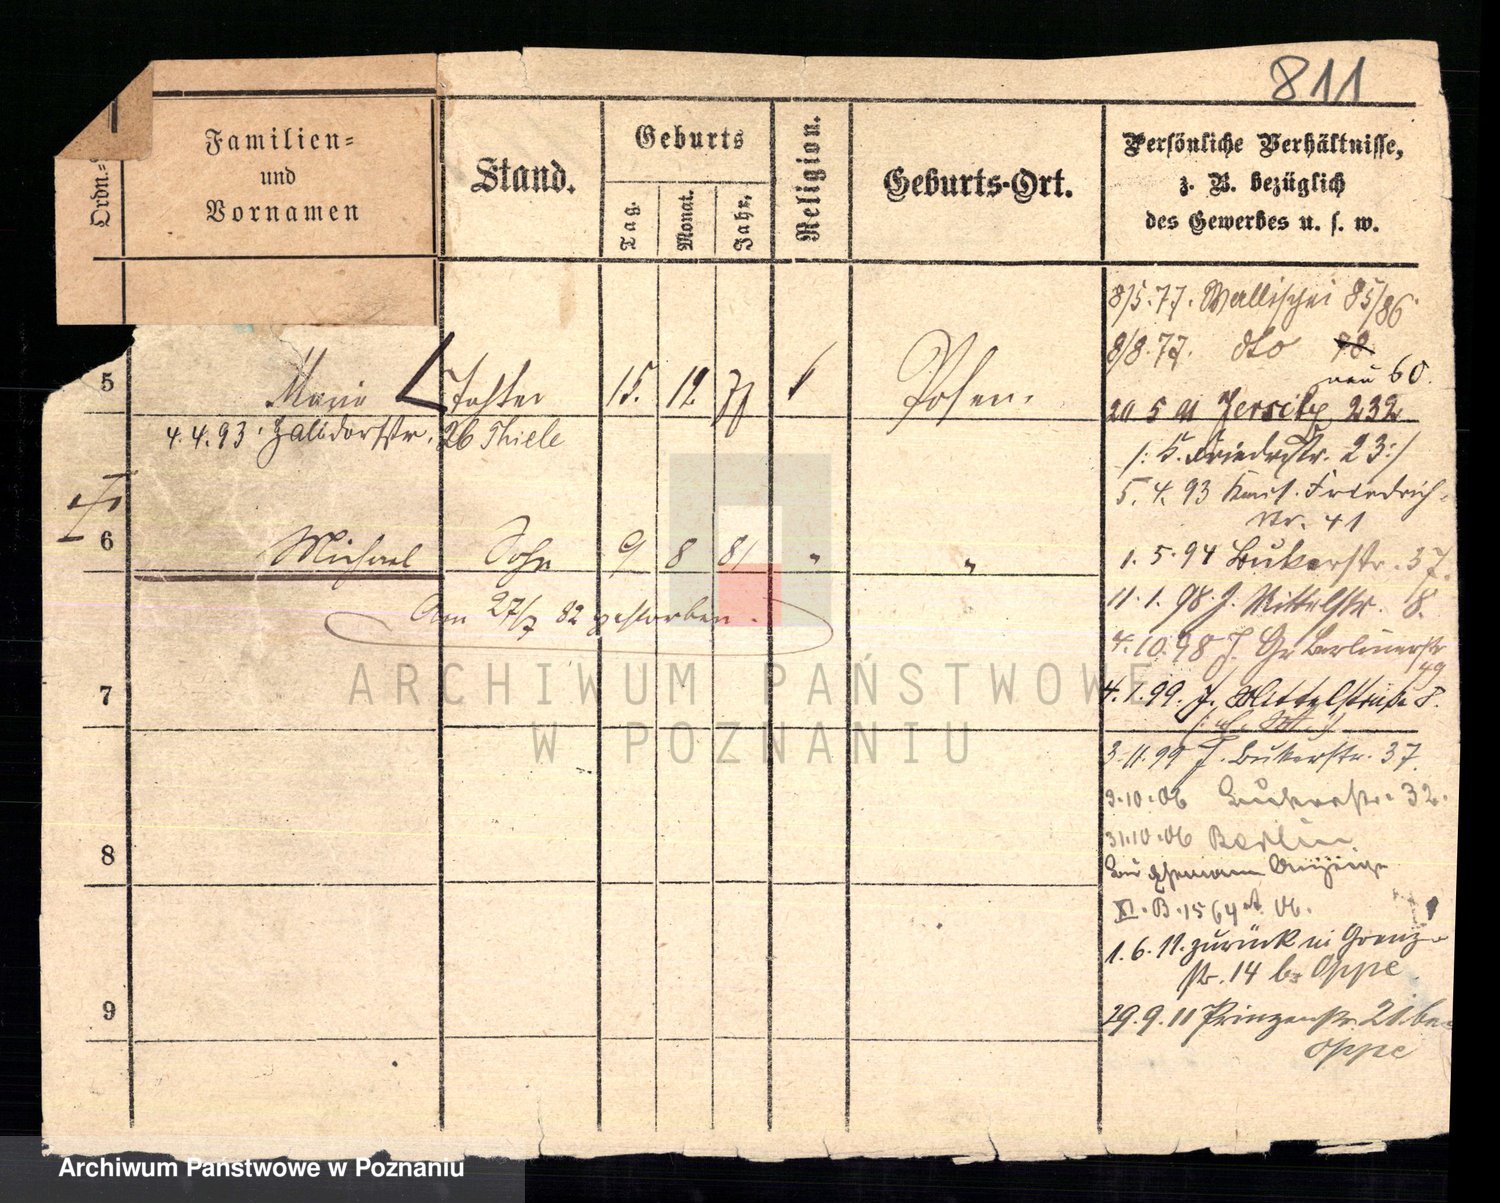 811
Ordn.=
Familien=
und
Vornamen
Stand.
Geburts
Tag.
Monat.
Jahr.
Religion.
Geburts-Ort.
Persönliche Verhältnisse,
z. B. bezüglich
des Gewerbes u. s. w.
8/5.77. Wallischei 85/86
8/8.77. dto 98
neu 60.
5 Marie Tochter 15. 12. Posen.
20 5 91 Jersitz 232
4.4.93. 26 Thiele
/: K. Friedrichstr. 23:/
5.4.93 Friedrich-
str. 41
6 Michael Sohn 9 8 81 " "
1.5.94 Bukerstr. 37.
Am 27/7 82 gestorben.
11.1.98 J. Mittelstr. 8.
4.10.98 J. Gr Berlinerstr
49
7
4.1.99. J. Mittelstraße 8.
3.11.99 J. Bukerstr. 37.
9.10.06 32.
8
31.10.06 Berlin
Anzeige
XI. B. 1564 06.
1.6.11. zurück in Grenz-
str. 14 bei Oppe
9
29.9.11 Prinzenstr. 21 bei
Oppe
ARCHIWUM PAŃSTWOWE
W POZNANIU
Archiwum Państwowe w Poznaniu